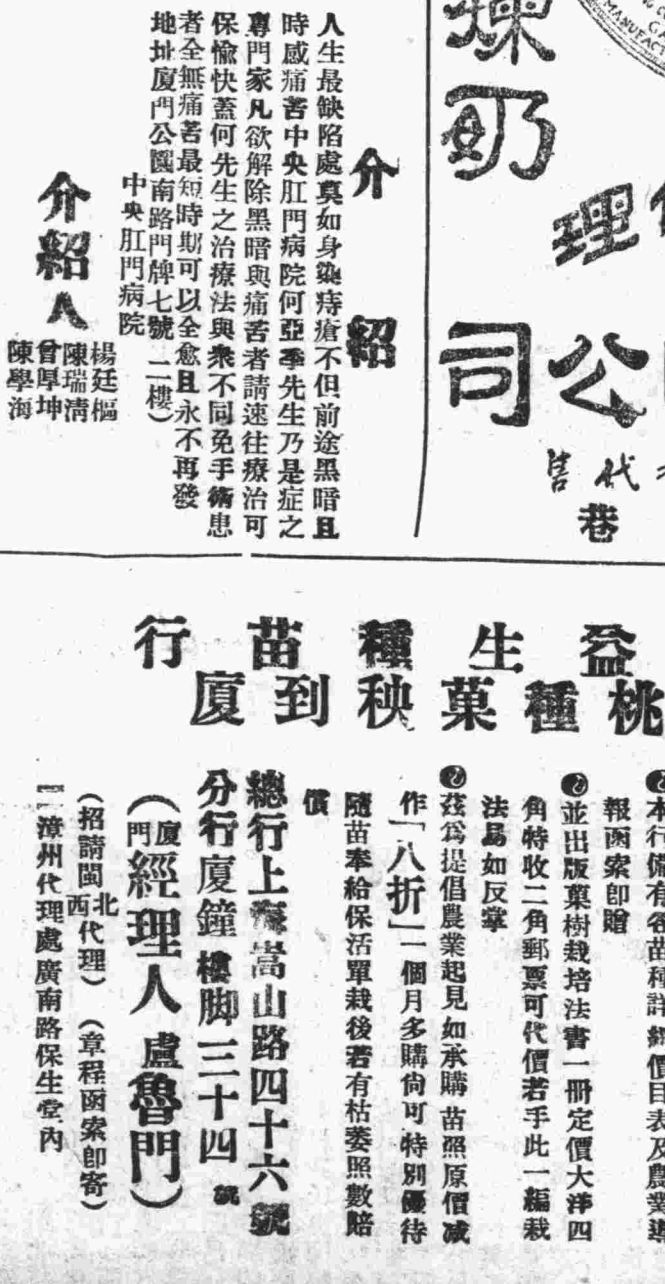 煉奶
理
公司
代售
巷
介紹
人生最缺陷處莫如身染痔瘡不但前途黑暗且
時感痛苦中央肛門病院何亞季先生乃是症之
專門家凡欲解除黑暗與痛苦者請速往療治可
保愉快蓋何先生之治療法與衆不同免手術患
者全無痛苦最短時期可以全愈且永不再發
地址廈門公園南路門牌七號(二樓)
中央肛門病院
介紹人
楊廷樞
陳瑞清
曾厚坤
陳學海
益生種苗行
桃種菓秧到廈
本行備有各苗種詳細價目表及農業導
報函索即贈
並出版菓樹栽培法書一冊定價大洋四
角特收二角郵票可代價若手此一編栽
法易如反掌
茲爲提倡農業起見如承購苗照原價减
作「八折」一個月多購尙可特別優待
隨苗奉給保活單栽後若有枯萎照數賠
價
總行上海嵩山路四十六號
分行廈鐘樓脚三十四號
(廈門經理人盧魯門)
(招請閩北西代理)(章程函索卽寄)
漳州代理處廣南路保生堂內